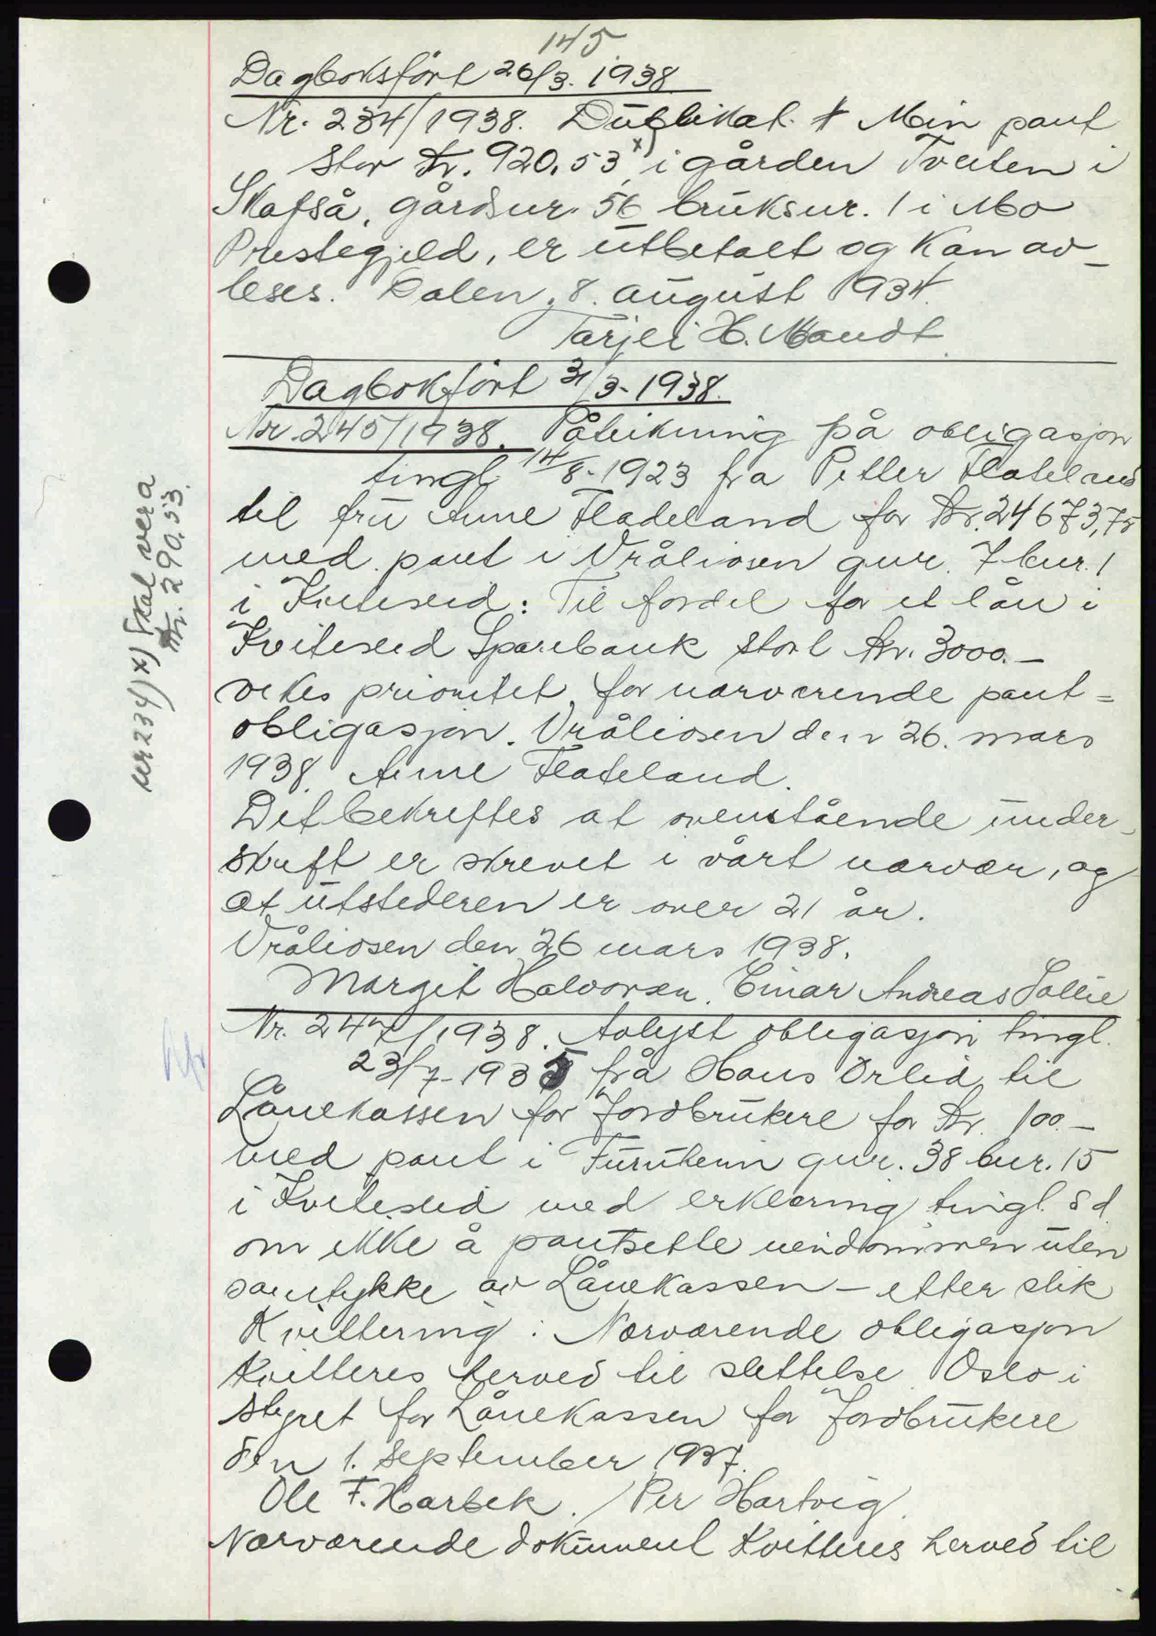 145
Dagboksfört 26/3. 1938
Nr. 234/1938. Dublikat. Min pant
stor kr. 920.53 x) i gården Tveiten i
Skafså, gårdsnr. 56 bruksnr. 1 i Mo
Prestegjeld, er utbetalt og kan av-
leses. Dalen, 8. august 1934.
Tarjei H. Mandt
Dagbokfört 31/3-1938.
Nr. 245/1938. Påteikning på obligasjon
tingl. 14/8-1923 fra Petter Flateland
til fru Anne Fladeland for kr. 24673,75
med pant i Vråliosen gnr. 7 bnr. 1
i Kviteseid: Til fordel for et lån i
Kviteseid Sparebank stort kr. 3000.-
vikes prioritet for nærværende pant=
obligasjon. Vråliosen den 26. mars
1938. Anne Flateland.
Det bekreftes at ovenstående under-
skrift er skrevet i vårt nærvær, og
at utstederen er over 21 år.
Vråliosen den 26 mars 1938.
Margit Halvorsen. Einar Andreas Sollie
Nr. 247/1938. Avlyst obligasjon tingl.
23/7-1935 frå Hans Orlid til
Lånekassen for Jordbrukere for kr. 100.-
med pant i Furuheim gnr. 38 bnr. 15
i Kviteseid med erklæring tingl. s d
om ikke å pantsette eiendommen uten
samtykke av Lånekassen - etter slik
Kvittering: Nærværende obligasjon
kvitteres herved til slettelse. Oslo i
styret for Lånekassen for Jordbrukere
den 1. september 1937.
Ole F. Harbek. / Per Hartvig.
Nærværende dokument kvitteres herved til
nr 234) x) skal vera
kr. 290.53.